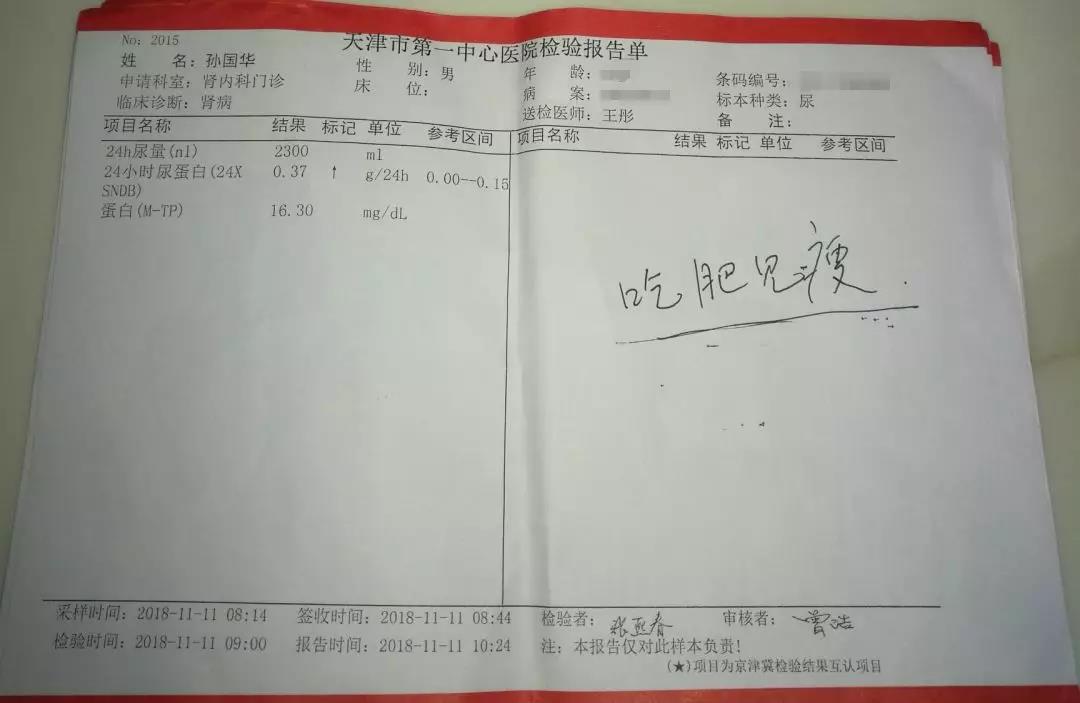 天津市第一中心医院检验报告单
No: 2015
姓 名: 孙国华 性 别: 男 年 龄: 条码编号:
申请科室: 肾内科门诊 床 位: 病 案: 标本种类: 尿
临床诊断: 肾病 送检医师: 王彤 备 注:
项目名称 结果 标记 单位 参考区间 项目名称 结果 标记 单位 参考区间
24h尿量(nl) 2300 ml
24小时尿蛋白(24X 0.37 ↑ g/24h 0.00--0.15
SNDB)
蛋白(M-TP) 16.30 mg/dL
吃肥见瘦.
采样时间: 2018-11-11 08:14 签收时间: 2018-11-11 08:44 检验者: 张燕春 审核者: 曾浩
检验时间: 2018-11-11 09:00 报告时间: 2018-11-11 10:24 注: 本报告仅对此样本负责!
(★)项目为京津冀检验结果互认项目